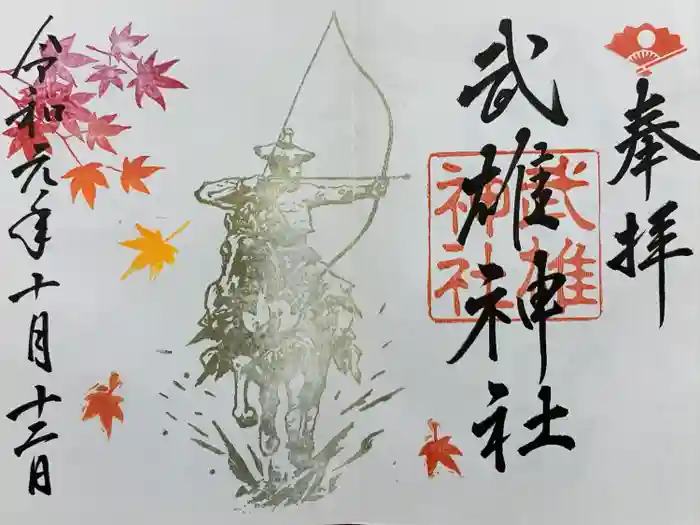 奉拝
武雄神社
武雄
神社
令和元年十月十二日